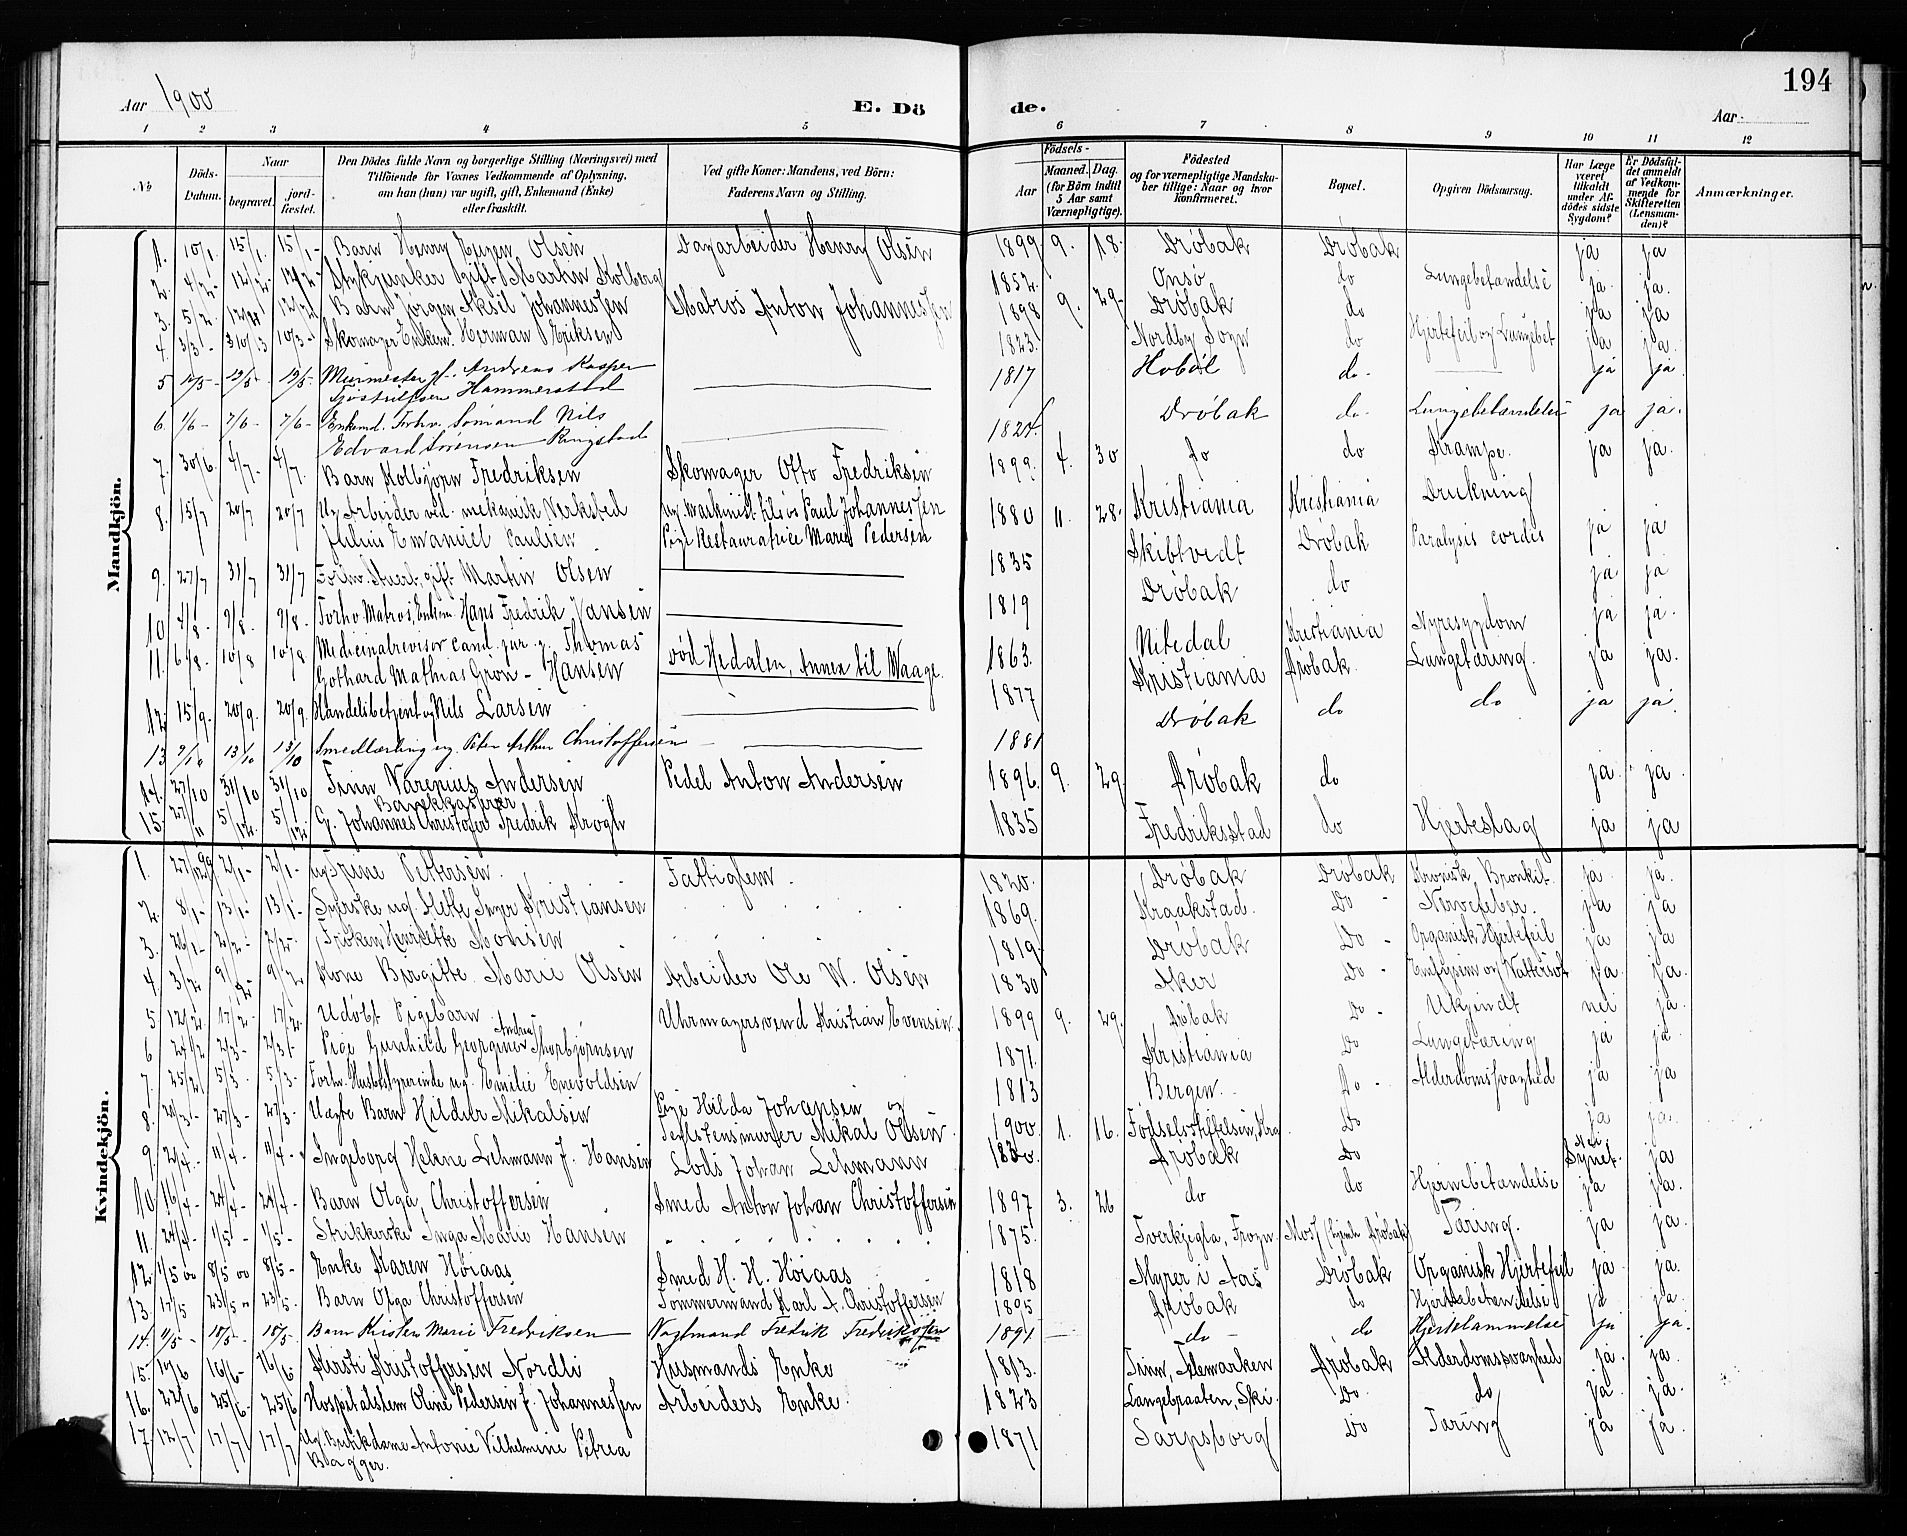 Aar 1900
E. Dö de.
Aar
194
1 2 3 4 5 6 7 8 9 10 11 12
No
Döds-Datum.
Naar
begravet.
jord-fæstet.
Den Dödes fulde Navn og borgerlige Stilling (Næringsvei) med
Tilföiende for Voxnes Vedkommende af Oplysning,
om han (hun) var ugift, gift, Enkemand (Enke)
eller fraskilt.
Ved gifte Koner: Mandens, ved Börn:
Faderens Navn og Stilling.
Födsels-
Aar
Maaned. Dag.
(for Börn indtil
5 Aar samt
Værnepligtige).
Födested
og for værnepligtige Mandska-
ber tillige: Naar og hvor
konfirmeret.
Bopæl.
Opgiven Dödsaarsag.
Har Læge
været
tilkaldt
under Af-
dödes sidste
Sygdom?
Er Dödsfal-
det anmeldt
af Vedkom-
mende for
Skifteretten
(Lensman-
den)?
Anmærkninger.
Mandkjön.
1. 10/1. 15/1. 15/1- Barn Henry Eugen Olsen Dagarbeider Henry Olsen 1899 9. 18. Dröbak Dröbak ja ja
2. 4/2- 12/2- 12/2- Stykjunker gift Martin Kolberg 1852. Onsö do Lungebetændelse ja. ja.
3. 5/2. 12/2 12/2 Barn Jörgen Aksel Johannessen Matros Anton Johannessen 1898 9. 29- Dröbak do ja ja
4. 3/3- 10/3 10/3- Skomager Enkem. Herman Eriksen 1823. Nordby Sogn do Hjertefeil og Lungebet ja ja.
5 12/5- 19/5- 19/5- Murmester g. Andreas Kasper
Hammerstad 1817 Hobøl do- ja ja
6. 1/6- 7/6- 7/6- Enkemd. Forhv. Sömand Nils
Edvard Sörensen Ringstad 1824. Dröbak do- Lungebetændelse ja ja.
7. 30/6. 4/7- 4/7. Barn Kolbjörn Fredriksen Skomager Otto Fredriksen 1899. 4. 30 do do Krampe. ja ja.
8. 15/7 20/7 20/7 Ug Arbeider ved mekanisk Verksted
Julius Emanuel Paulsen Ug. Maskinist Paul Johannessen
Pige Restauratrice Maren Pedersen 1880 11. 28. Kristiania Kristiania Drukning ja ja
9. 27/7 31/7 31/7 Forhv. Stuert, gift Martin Olsen 1835 Skibtvedt Dröbak Paralysis cordis ja ja
10 4/8- 9/8- 9/8- Forhv. Matros, Enkem. Hans Fredrik Jansen 1819 Dröbak do ja ja.
11. 6/8- 10/8 10/8 Medicinalrevisor cand. jur. g. Thomas
Gothard Mathias Gron-Hansen död Hedalen, Annex til Waage. 1863. Nitedal Kristiania Nyresygdom ja ja.
12. 15/9. 20/9. 20/9. Handelsbetjent ug Nils Larsen 1877 Kristiania Dröbak. Lungetæring. ja ja
13 9/10 13/10 13/10 Smedlærling ug. Peter Arthur Christoffersen 1881 Dröbak do do
14. 27/10 31/10 31/10 Finn Varenius Andersen Pedel Anton Andersen 1896. 9. 29 Dröbak do ja ja
15. 27/11 5/12. 5/12. Bankkaserer
G. Johannes Christofer Fredrik Krogh 1835 Fredriksstad do Hjerteslag ja ja
Kvindekjön.
1. 27/12 99 2/1- 2/1- ug Trine Pettersen. Fattiglem. 1820. Dröbak Dröbak Kronisk Bronkit. ja. ja.
2. 8/1- 13/1- 13/1- Syerske ug. Hette Inger Kristiansen 1869. Kraakstad. Do - Nervefeber. ja ja
3. 26/1- 2/2- 2/2- Fröken Henriette Monsen 1819. Dröbak Do - Organisk Hjertefeil ja ja
4. 3/2 9/2- 9/2 Kone Birgitte Marie Olsen Arbeider Ole W. Olsen 1830 Aker Do - Emfysem og Vattersot ja. ja.
5 12/2. 17/2- 17/2. Udöbt Pigebarn Uhrmagersvend Kristian Evensen. 1899 9. 29. Dröbak Do - Ukjendt nei ja.
6 24/2 2/3- 2/3- Pige Gunhild Georgine Andrea Thorbjörnsen 1871. Kristiania Do Lungetæring ja ja
7. 25/2 5/3- 5/3- Forhv. Husbestyrerinde ug. Emilie Enevoldsen 1813 Bergen. Do - Alderdomssvaghed ja ja
8. 20/3- 27/3- 27/3- Uægte Barn Hildur Mikalsen Pige Hilda Johansen og
Teglstensmurer Mikal Olsen 1900. 1. 16. Födselsstiftelsen, Kra. Do ja ja.
9. 29/4- 11/4- 11/4- Ingeborg Helene Lehmann f. Hansen Lods Johan Lehmann 1830. Dröbak Do Nei
Synet. ja
10 16/4- 24/4- 24/4- Barn Olga Christoffersen Smed Anton Johan Christoffersen 1897 3. 26 do do Hjernebetændelse ja ja.
11. 24/4- 1/5- 1/5- Strikkerske Inga Marie Hansen 1875. Tverkjegla, Frogn. Moss (hjemh. Dröbak) Tæring. ja ja.
12. 1/5 00 8/5 00 8/5- Enke Karen Höiaas Smed H. H. Höiaas 1818 Myrer i Aas Dröbak Organisk Hjertefeil ja. ja.
13. 17/5 23/5- 23/5. Barn Olga Christoffersen Tömmermand Karl A. Christoffersen 1895 Dröbak do ja ja.
14. 11/5- 18/5- 18/5- Barn Kirsten Marie Fredriksen Vagtmand Fredrik Fredriksen 1891 - do - do Hjertelammelse ja ja.
15. 10/6 16/6- 16/6. Kirsti Kristoffersen Nordli Husmands Enke 1813. Tinn, Telemarken Dröbak Alderdomssvaghed ja. ja.
16. 22/6 25/6- 25/6 Hospitalslem Oline Pedersen f. Johannessen Arbeiders Enke. 1823 Langebraaten, Ski. Do. do ja. ja.
17. 12/7 17/7 17/7 Ug. Butikdame Antonie Vilhelmine Petrea
Bagger. 1871 Sarpsborg Do Tæring ja ja.